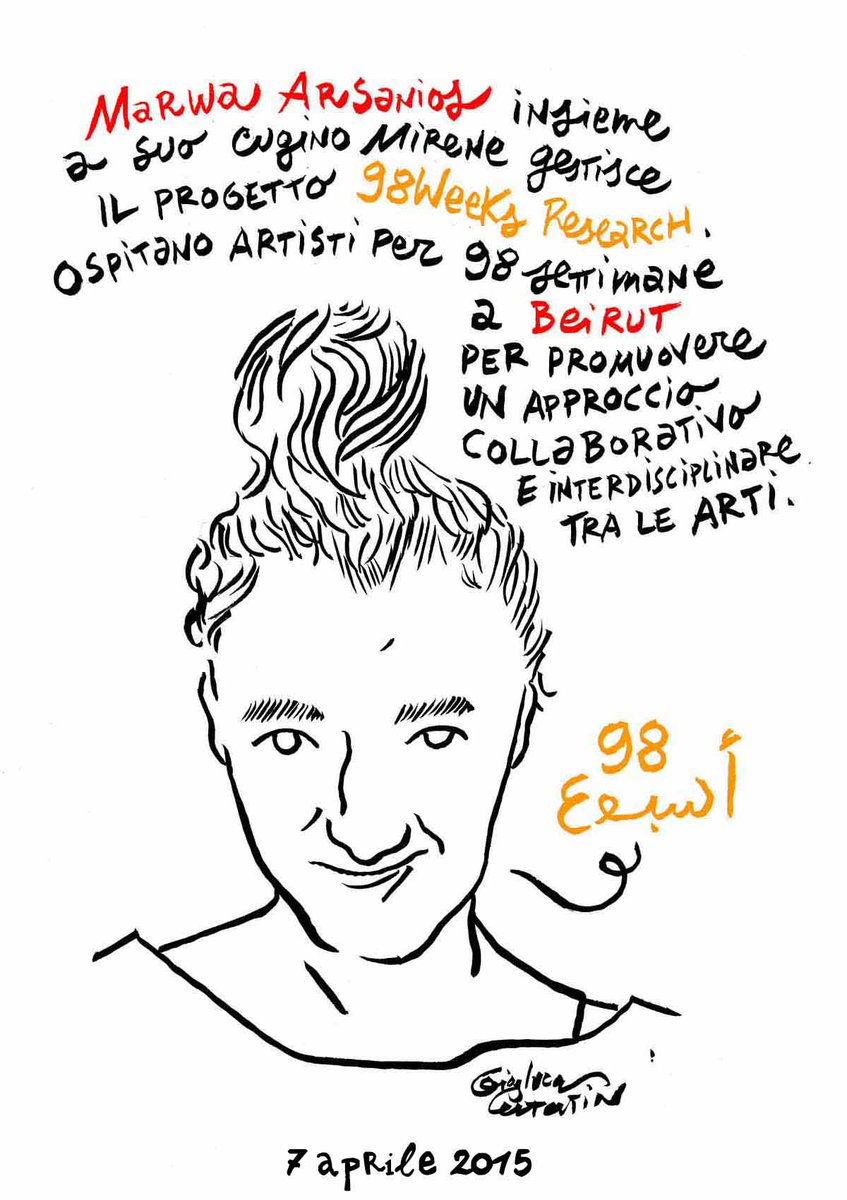 Marwa Arsanios insieme
a suo cugino Mirene gestisce
il progetto 98Weeks Research.
Ospitano artisti per 98 settimane
a Beirut
per promuovere
un approccio
collaborativo
e interdisciplinare
tra le arti.
98
أسبوع
Gianluca
Costantini
7 aprile 2015